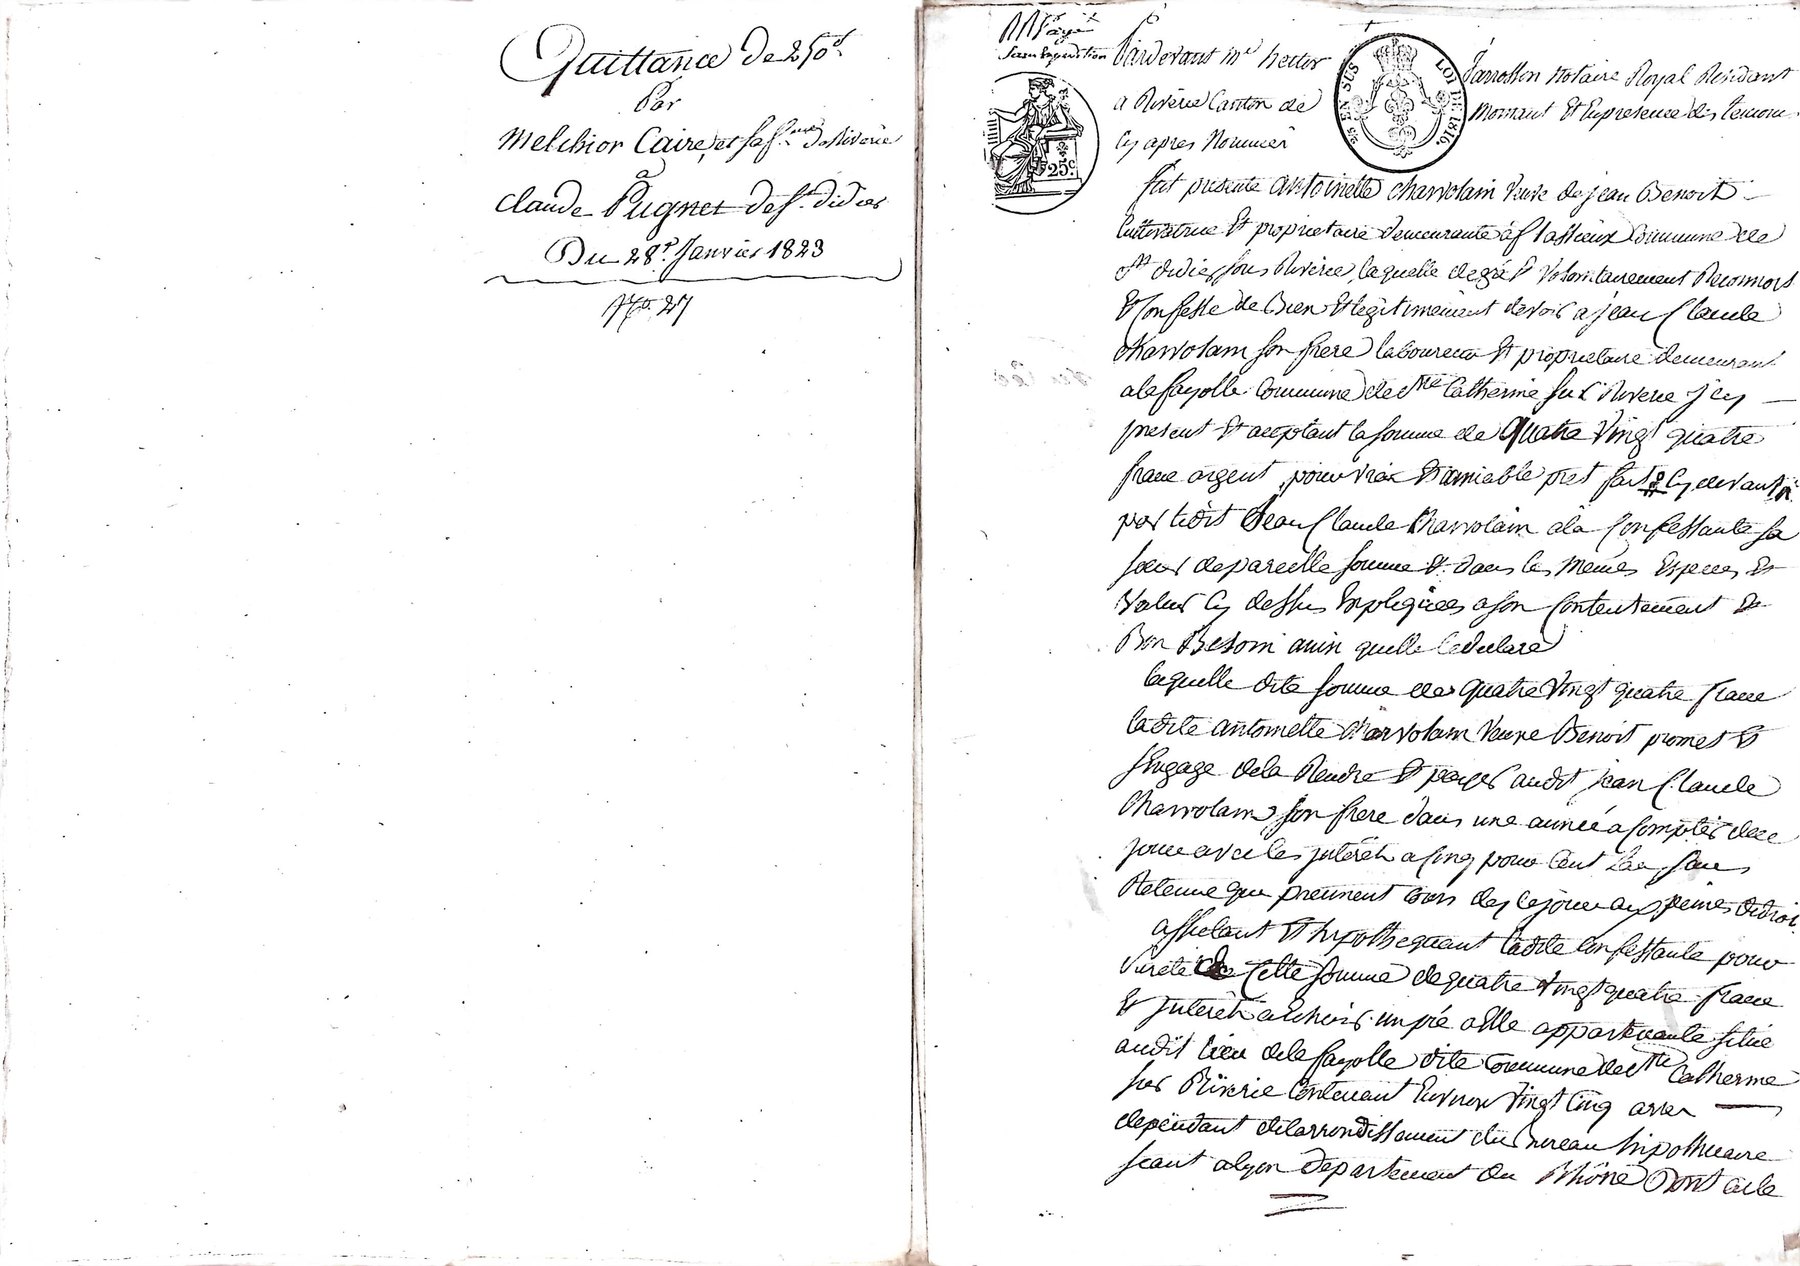 Quittance de 250f.
Par
Melchior Caire, et sa fme de Riverie
à
Claude Pugnet de St. didier
Du 28r. Janvier 1823
No. 27
payé
sans Expedition
25c.
25 EN SUS
LOI DE 1816.
Pardevant me hector Jarrosson notaire Royal Residant
a Riverie Canton de Mornant Et En presence des temoins
Cy apres Nommés
fut presente antoinette charvolain Veuve de jean Benoit
Cultivatrice Et proprietaire demeurante à commune de
St didier sous Riverie, laquelle de gré Et Volontairement Reconnois
Et Confesse de Bien Et legitimement devoir a jean Claude
charvolain son frere laboureur Et proprietaire demeurant
a la fayolle Commune de Ste Catherine sur Riverie jcy
present Et acceptant la somme de quatre Vingt quatre
franc argent, pour vrai Et amiable pret fait cy devant
par ledit Jean Claude Charvolain a la Confessante sa
sœur de pareille somme Et dans les mêmes Especes Et
Valeur Cy dessus Expliquées a son Contentement Et
Bon Besoin ainsi quelle le declare
laquelle dite somme de quatre Vingt quatre franc
ladite antoinette Charvolain Veuve Benoit promet Et
sengage de la Rendre Et payer audit jean Claude
Charvolain son frere dans une année a Compter de ce
jour avec les jnterêts a cinq pour Cent lan sans
Retenue qui prennent cours des ce jour aux peines de droit
affectant Et hipothequant ladite Confessante pour
sureté de Cette somme de quatre vingt quatre franc
Et jnterêts a Echoir un pré a Elle appartenante situé
audit lieu de la fayolle dite commune de Ste Catherine
sur Riverie Contenant Environ Vingt Cinq arres
dependant de larrondissement du Bureau hipothecaire
seant a lyon departement du Rhône Dont acte